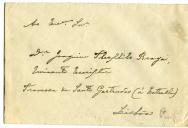 Ao Exmo. Sr.
Dr. Joaquim Theophilo Braga,
Eminente Escriptor
Travessa de Santa Gertrudes (á Estrella)
Lisboa